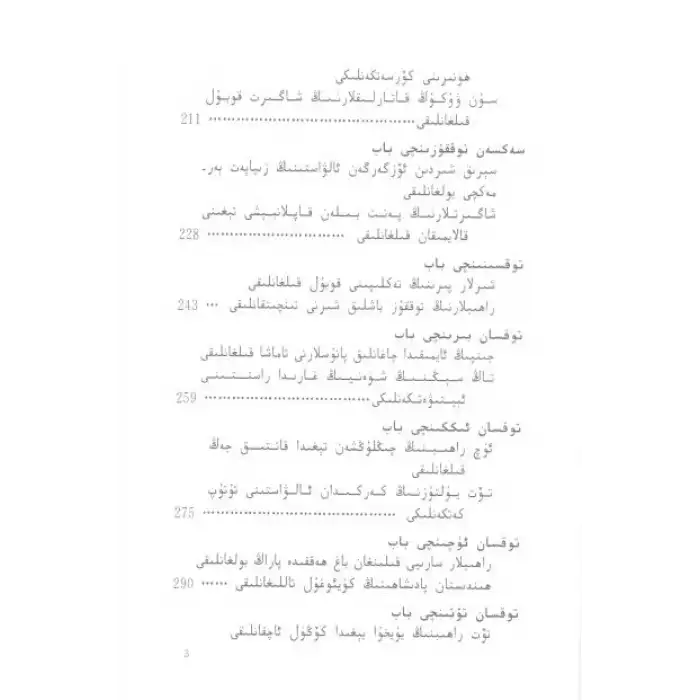 ھۈنىرىنى كۆرسەتكەنلىكى
سـۇن ۋۇكـۇڭ قـاتـارلـىقلارنـىڭ شـاگىـرت قوبـۇل
قىلغانلىقى ............................................ 211
سەكسەن توققۇزىنچى باب
سېرىق شىردىن ئۆزگەرگەن ئالۋاستىنىڭ زىياپەت بەر-
مەكچى بولغانلىقى
شاگىـرتـلارنـىڭ پـەنـت بـىـلەن قـاپـلانـبېشى تېغىنى
قالايمىقان قىلغانلىقى .............................. 228
توقسىنىنچى باب
شىرلار پىرىنىڭ تەكلىپىنى قوبۇل قىلغانلىقى
راھىبلارنىڭ توققۇز باشلىق شىرنى تىنجىتقانلىقى ... 243
توقسان بىرىنچى باب
جىنپىڭ ئايمىقىدا چاغانلىق پانۇسلارنى تاماشا قىلغانلىقى
تـاڭ سـېڭـنـىـڭ شـۋەنـيـىڭ غـارىـدا راسـتـىـنـى
ئـېـيـتىۋەتـكەنلىكى .................................... 259
توقسان ئىككىنچى باب
ئۈچ راھـىـبـنىڭ چىڭلۇڭشەن تېغىدا قاتـتـىـق جەڭ
قىلغانلىقى
تـۆت يـۇلتۇزنـىڭ كـەركـىـدان ئـالـۋاستىنى تۇتۇپ
كەتكەنلىكى .......................................... 275
توقسان ئۈچىنچى باب
راھىبلار سارىيى قىلىنغان باغ ھەققىدە پاراڭ بولغانلىقى
ھىندىستان پادىشاھىنىڭ كۈيئوغۇل تاللىغانلىقى ...... 290
توقسان تۆتىنچى باب
تۆت راھىبنىڭ يۈيخۇا بېغىدا كۆڭۈل ئاچقانلىقى
3